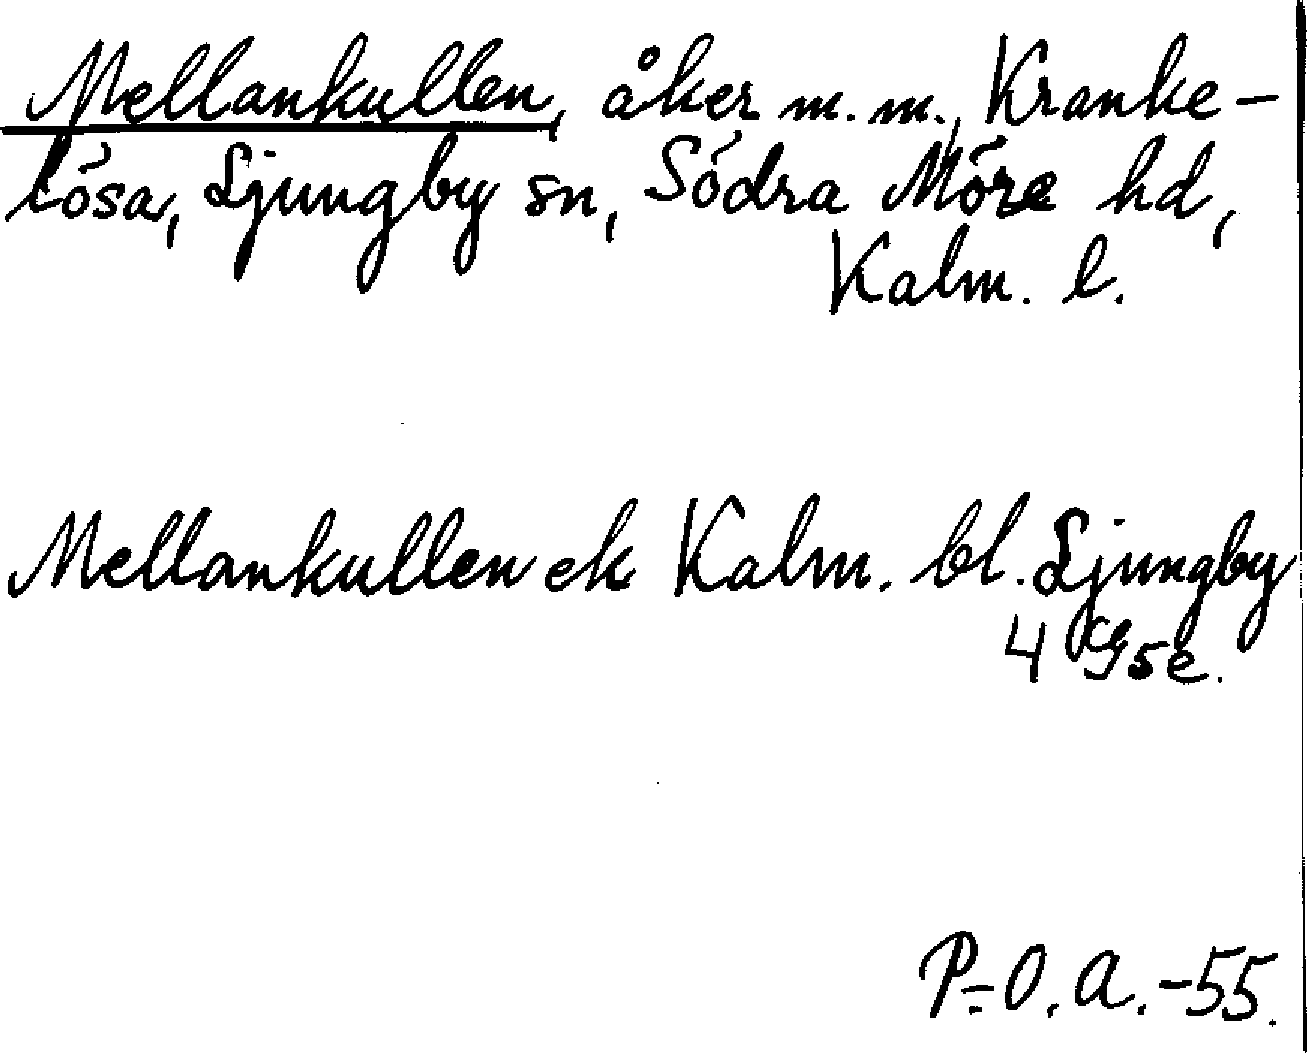 Mellankullen, åker m.m., Kranke-
lösa, Ljungby sn, Södra Möre hd,
Kalm. l.
Mellankullen ek Kalm. bl. Ljungby
4 G5e.
P.-O. A. -55.